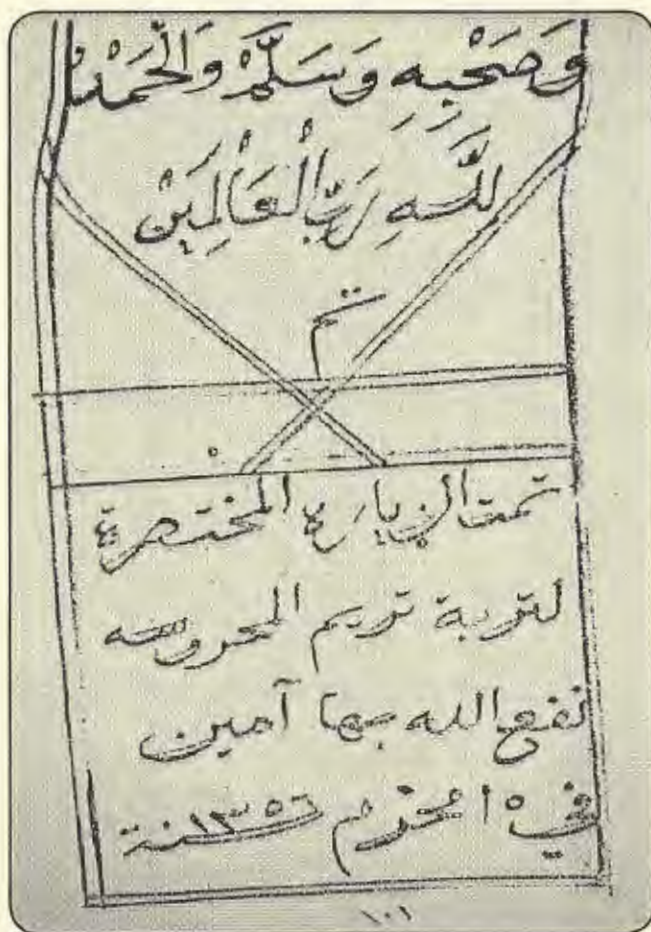 وَصَحْبِهِ وَسَلَّمْ وَالْحَمْدُ
لِلَّهِ رَبِّ الْعَالَمِيْنَ
تم
تمت الزيارة المختصرة
لتربة تريم المحروسه
نفع الله بها آمين
في محرم سنة
١٠١